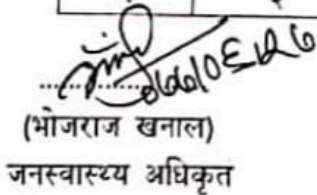 (भोजराज खनाल)
जनस्वास्थ्य अधिकृत